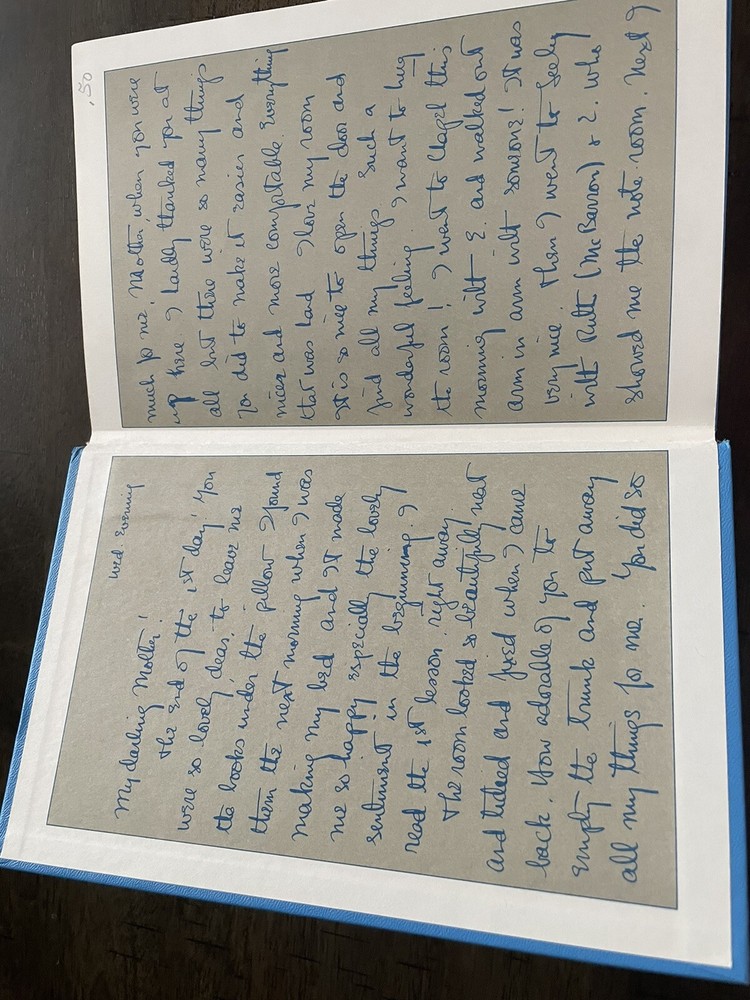 Wed Evening
My darling Mother!
The End of the 1st day! You
were so lovely, dear, to leave me
the books under the pillow I found
them the next morning when I was
making my bed and It made
me so happy especially the lovely
sentiment in the beginning. I
read the 1st lesson right away.
The room looked so beautifully neat
and tidied and fixed when I came
back. You adorable of you to
empty the trunk and put away
all my things for me. You did so
.50
much for me, Mother, when you were
up here I hardly thanked you at
all but there were so many things
you did to make it easier and
nicer and more comfortable. Everything
that was hard I love my room
It is so nice to open the door and
find all my things. Such a
wonderful feeling. I want to hug
the room! I went to Chapel this
morning with E. and walked out
arm in arm with someone! It was
very nice. Then I went to Seeley
with Ruth (McBarron) & E. who
showed me the note room. Next I